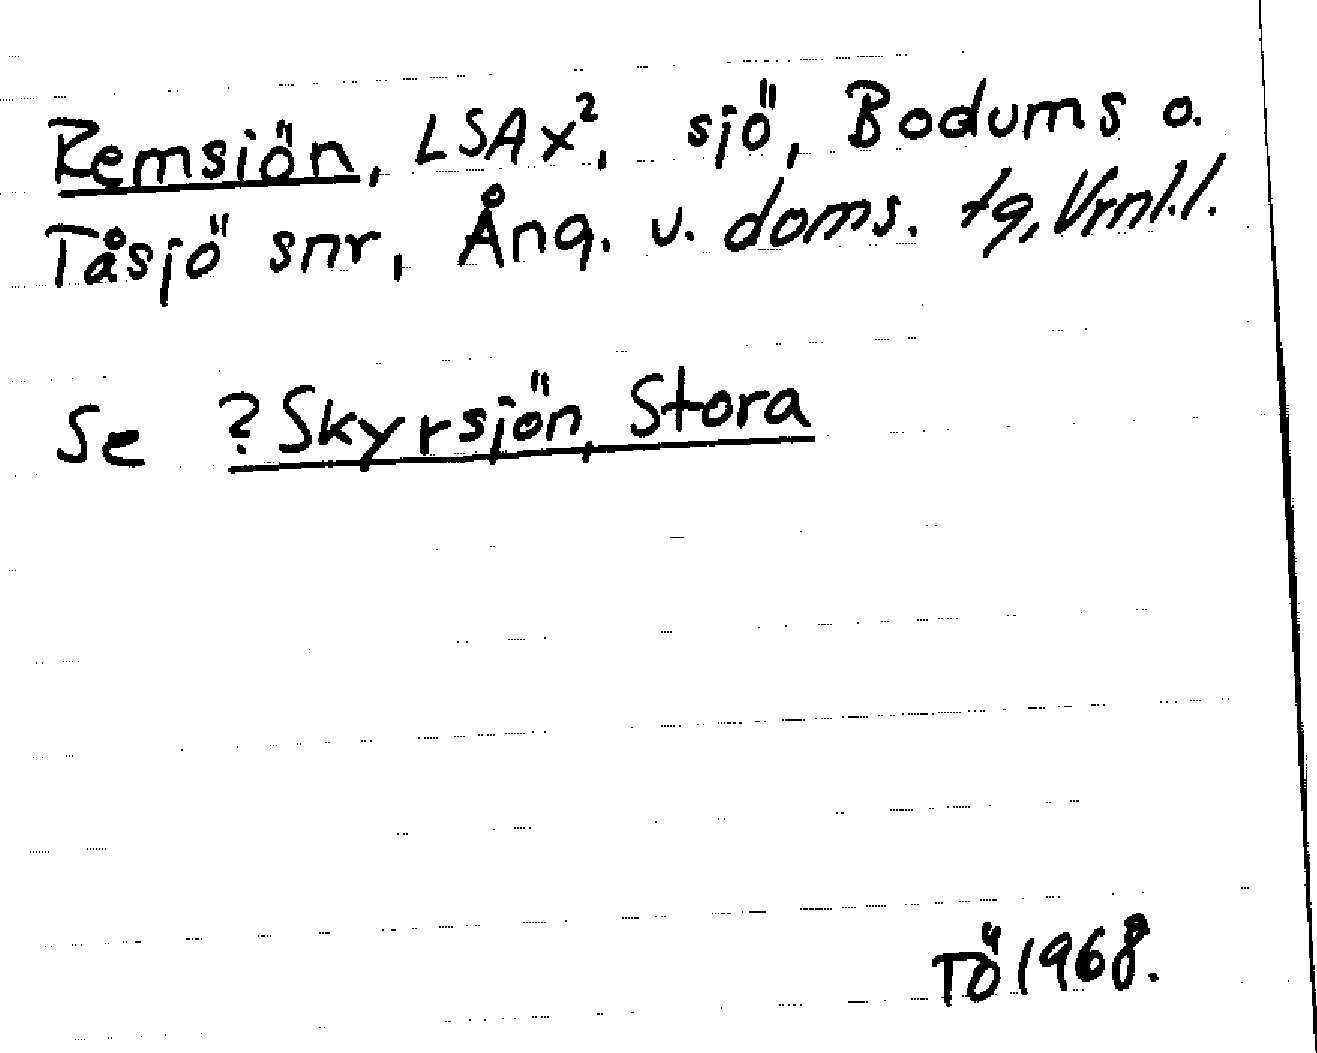 Remsiön, LSA x², sjö, Bodums o.
Tåsjö snr, Ång. v. doms. tg, Vrml.l.
Se ?Skyrsjön, Stora
TÖ 1968.